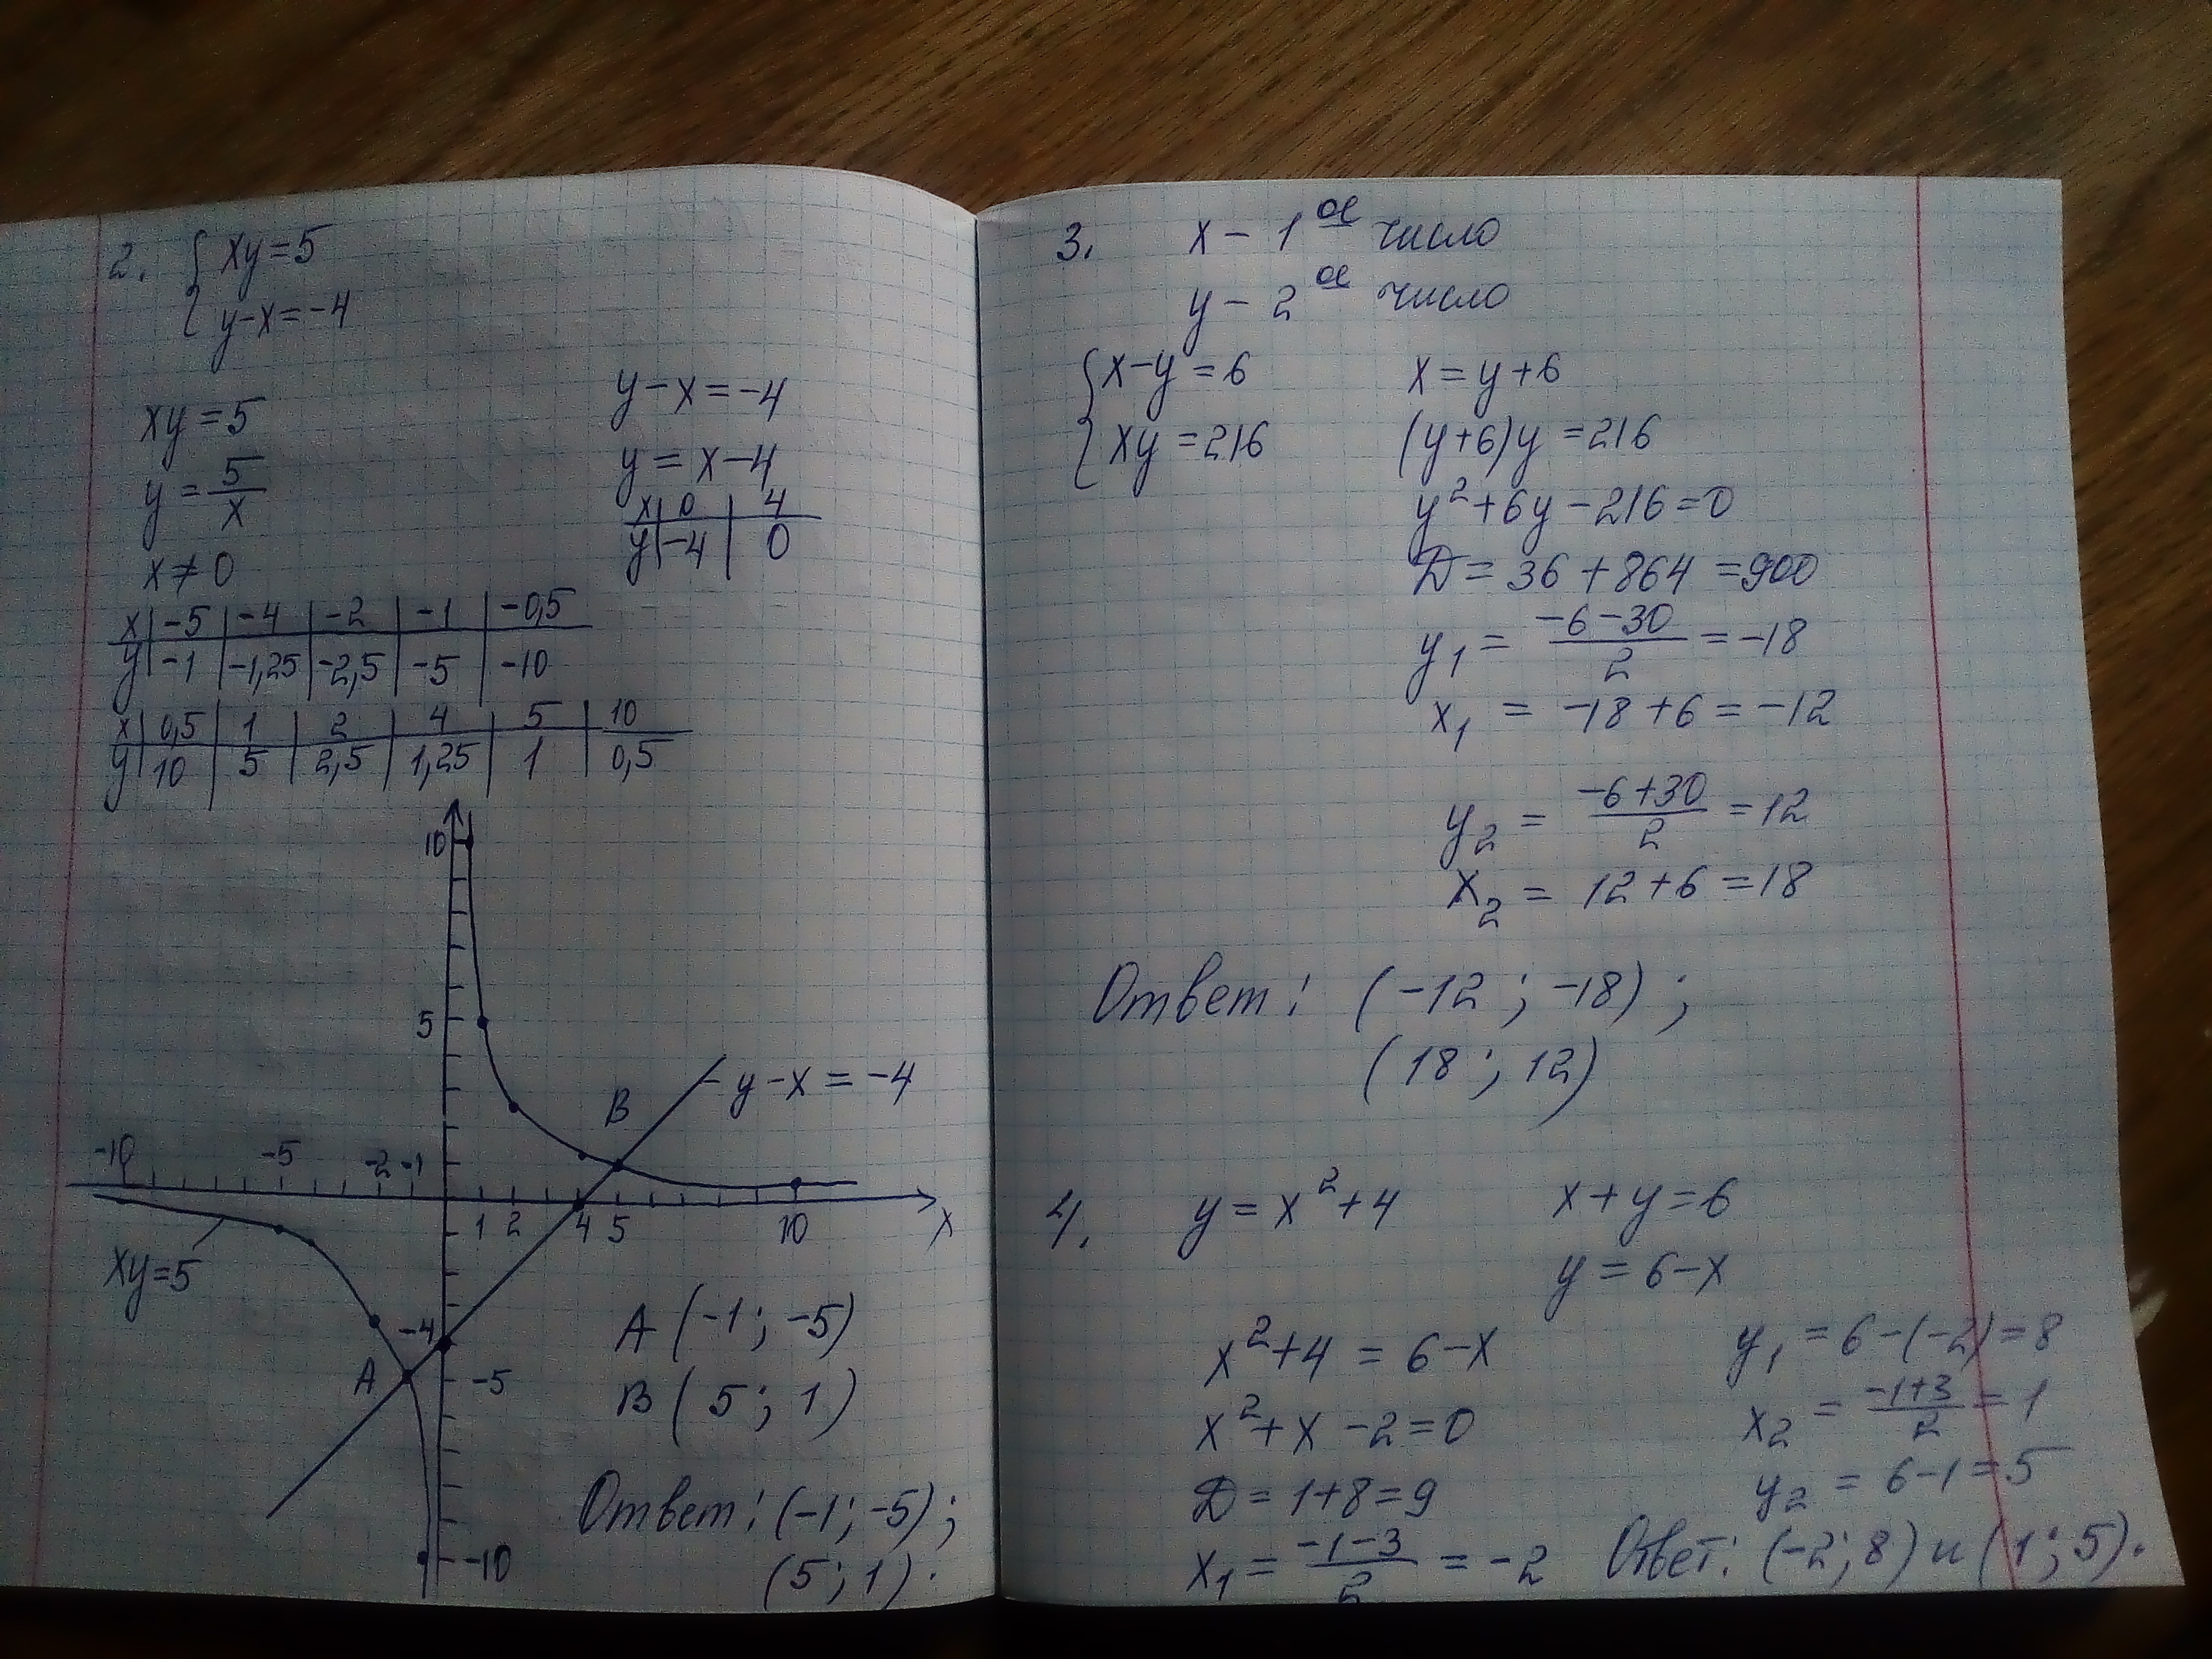 2. { xy=5
{ y-x=-4
xy=5
y = 5/x
x≠0
y-x=-4
y = x-4
x | 0 | 4
y | -4 | 0
x | -5 | -4 | -2 | -1 | -0,5
y | -1 | -1,25 | -2,5 | -5 | -10
x | 0,5 | 1 | 2 | 4 | 5 | 10
y | 10 | 5 | 2,5 | 1,25 | 1 | 0,5
10
5
B
y-x=-4
-10 -5 -2 -1
1 2 4 5 10 x
xy=5
-4
A
-5
-10
A (-1; -5)
B (5; 1)
Ответ: (-1; -5);
(5; 1).
3. x - 1ое число
y - 2ое число
{ x-y=6
{ xy=216
x=y+6
(y+6)y=216
y²+6y-216=0
Д=36+864=900
y₁ = (-6-30)/2 = -18
x₁ = -18+6=-12
y₂ = (-6+30)/2 = 12
x₂ = 12+6=18
Ответ: (-12; -18);
(18; 12)
4. y=x²+4
x+y=6
y=6-x
x²+4=6-x
x²+x-2=0
Д=1+8=9
x₁ = (-1-3)/2 = -2
y₁ = 6-(-2)=8
x₂ = (-1+3)/2 = 1
y₂ = 6-1=5
Ответ: (-2; 8) и (1; 5).